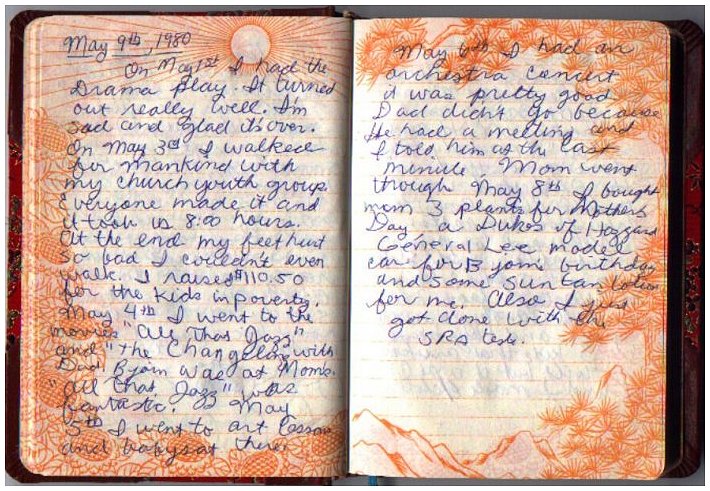 May 9th, 1980
On May 1st I had the
Drama play. It turned
out really well. I'm
sad and glad it's over.
On May 3rd I walked
for mankind with
my church youth group.
Everyone made it and
it took us 8:00 hours.
At the end my feet hurt
so bad I couldn't even
walk. I raised $110.50
for the kids in poverty.
May 4th I went to the
movies "All That Jazz"
and "The Changeling with
Dad. Bjorn was at Mom's.
"All that Jazz" was
fantastic. May
5th I went to art lesson
and babysat there.
May 6th I had an
orchestra concert
it was pretty good
Dad didn't go because
He had a meeting and
I told him at the last
minute. Mom went
though May 8th I bought
mom 3 plants for Mothers
Day, a Dukes of Hazzard
General Lee model
car for Bjorn's birthday
and some suntan lotion
for me. Also I just
got done with the
SRA tests.